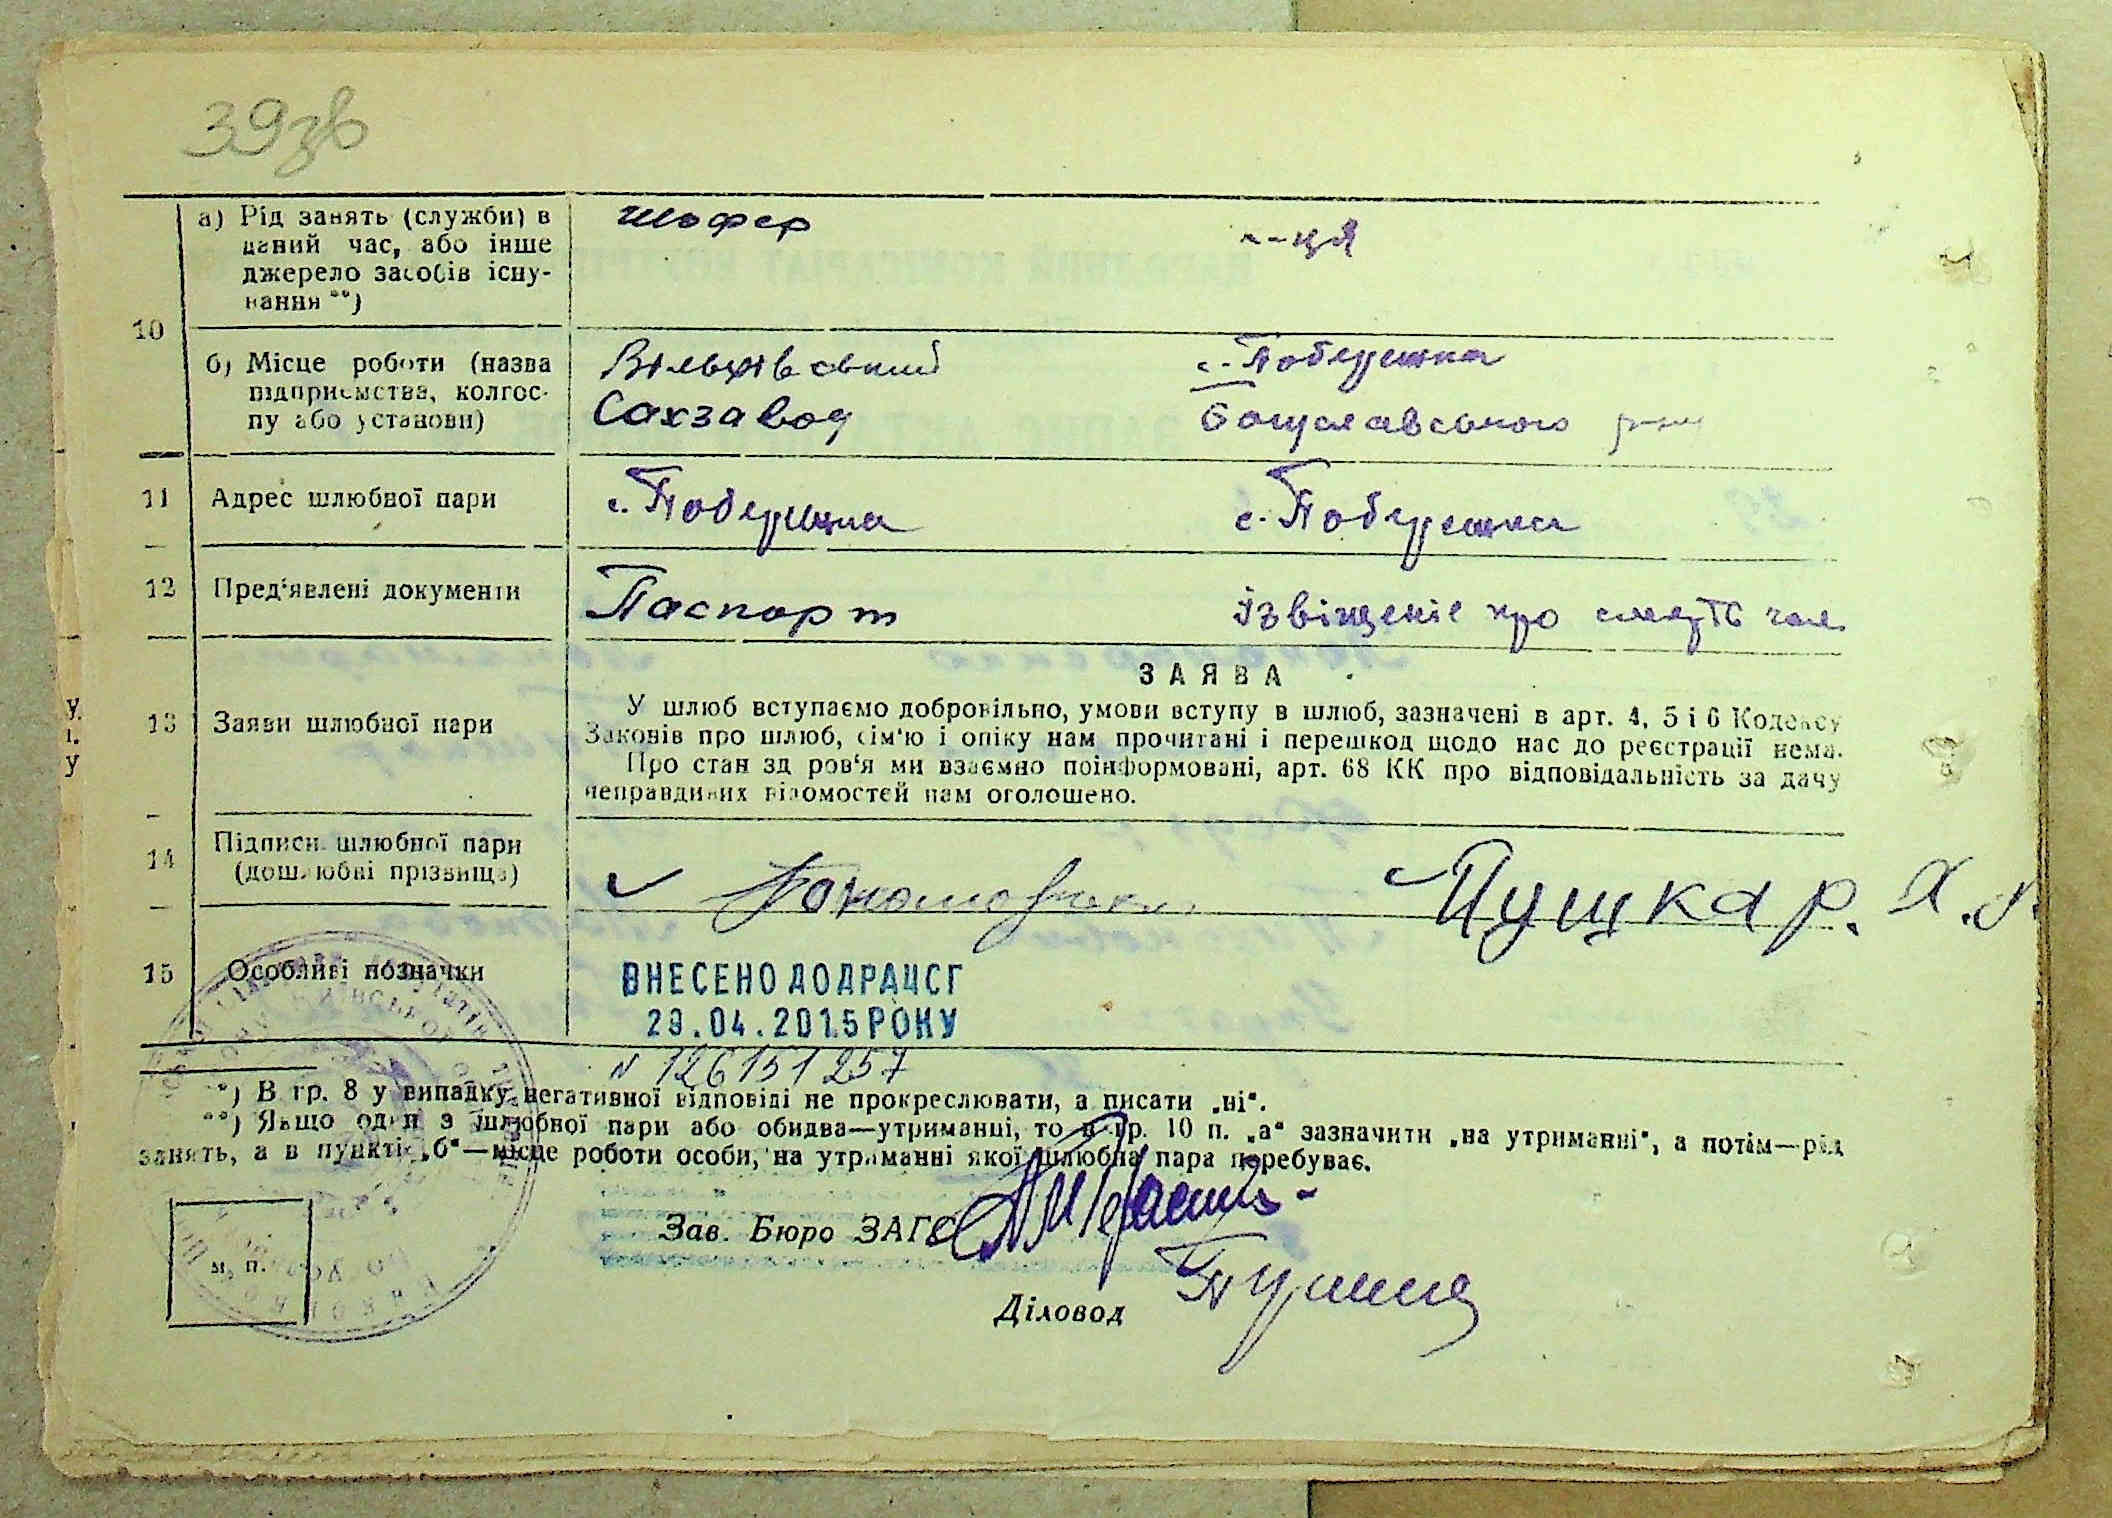 39зв
10
а) Рід занять (служби) в
даний час, або інше
джерело засобів існу-
вання **)
шофер
--ця
б) Місце роботи (назва
підприємства, колгос-
пу або установи)
Вільхівський
Сахзавод
с. Побережка
Богуславського р-ну
11
Адрес шлюбної пари
с. Побережка
с. Побережка
12
Пред'явлені документи
Паспорт
Ізвіщеніє про смерть чол.
13
Заяви шлюбної пари
ЗАЯВА
У шлюб вступаємо добровільно, умови вступу в шлюб, зазначені в арт. 4, 5 і 6 Кодексу
Законів про шлюб, сім'ю і опіку нам прочитані і перешкод щодо нас до реєстрації нема.
Про стан здоров'я ми взаємно поінформовані, арт. 68 КК про відповідальність за дачу
неправдивих відомостей нам оголошено.
14
Підписи шлюбної пари
(дошлюбні прізвища)
Пушкар. Х.
15
Особливі позначки
ВНЕСЕНО ДО ДРАЦСГ
29.04.2015 РОКУ
N 126151257
*) В гр. 8 у випадку негативної відповіді не прокреслювати, а писати „ні“.
**) Якщо один з шлюбної пари або обидва—утриманці, то в гр. 10 п. „а“ зазначити „на утриманні“, а потім—рід
занять, а в пункті „б“—місце роботи особи, на утриманні якої шлюбна пара перебуває.
Зав. Бюро ЗАГС
Діловод
м. п.